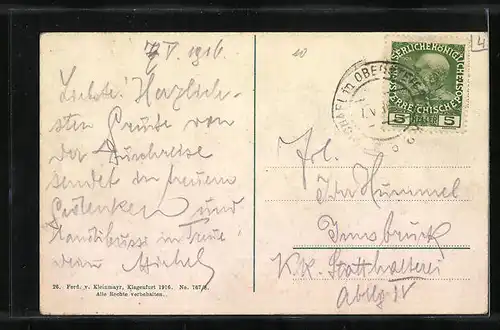 7 V. 1916.
Liebste! Herzlich-
sten Grüße von
der Durchreise
sendet in treuem
Gedenken und
Handküsse in Treue
dein Michel
26. Ferd. v. Kleinmayr, Klagenfurt 1916. No. 767/8.
Alle Rechte vorbehalten.
10
14
SERLICHEKÖNIGL
5 HELLER 5
MICHAEL in OBERST
Frl.
Ida Hummel
Innsbruck
K.K. Statthalterei
Abtlg IV